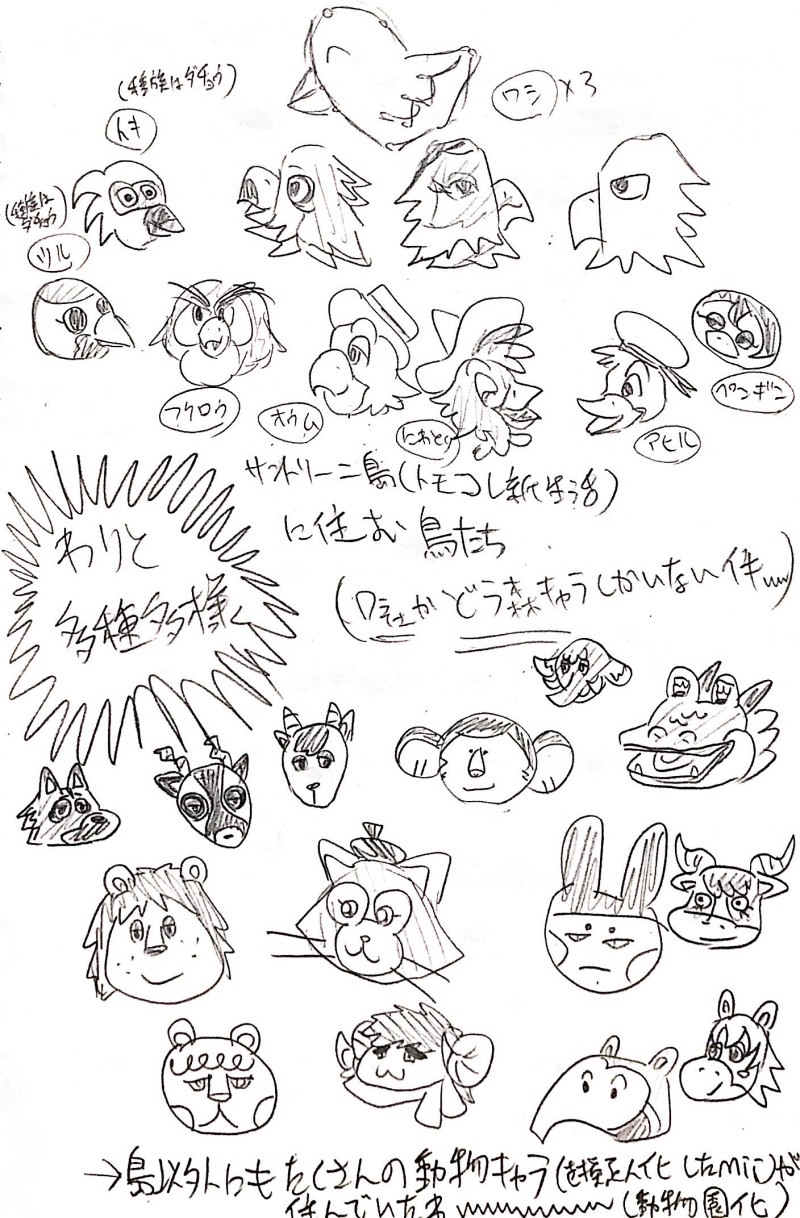 (種族はダチョウ)
トキ
ワシ×3
(種族はダチョウ)
ツル
フクロウ
オウム
にわとり
アヒル
ペンギン
サントリーニ島(トモコレ新生活)
に住む鳥たち
(ワシとかどう森キャラしかいない件www)
わりと
多種多様
→鳥以外にもたくさんの動物キャラ(を擬人化したMii)が
住んでいたねwwwwwwww(動物園化)